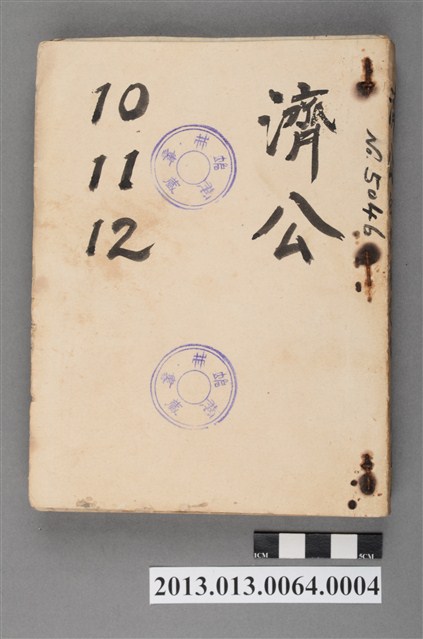 濟公
No. 5046
10
11
12
1CM
5CM
2013.013.0064.0004